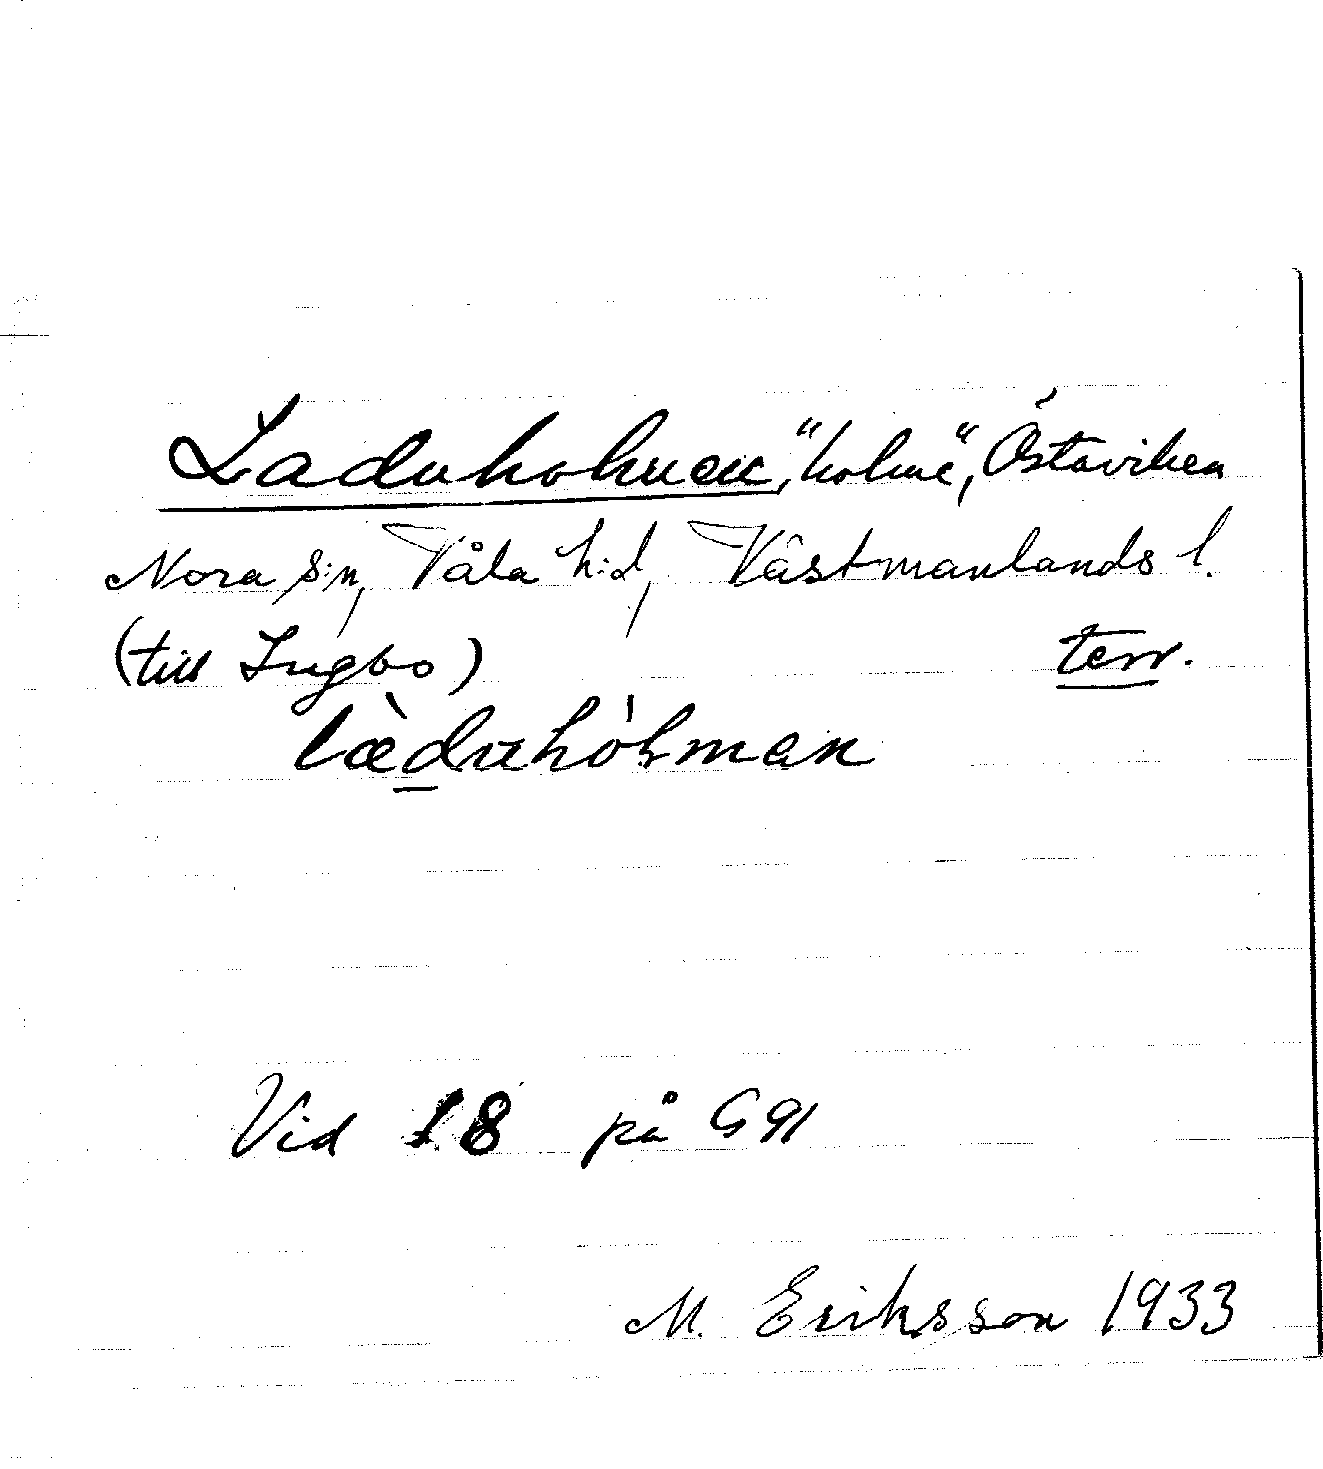 Laduholmen, "holme", Östaviken
Nora s:n, Våla h:d, Västmanlands l.
(till Ingbo) terr.
læduhólman
Vid 18 på G 91
M. Eriksson 1933